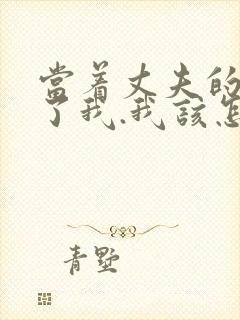 當着丈夫的
了我.我該怎
青墅